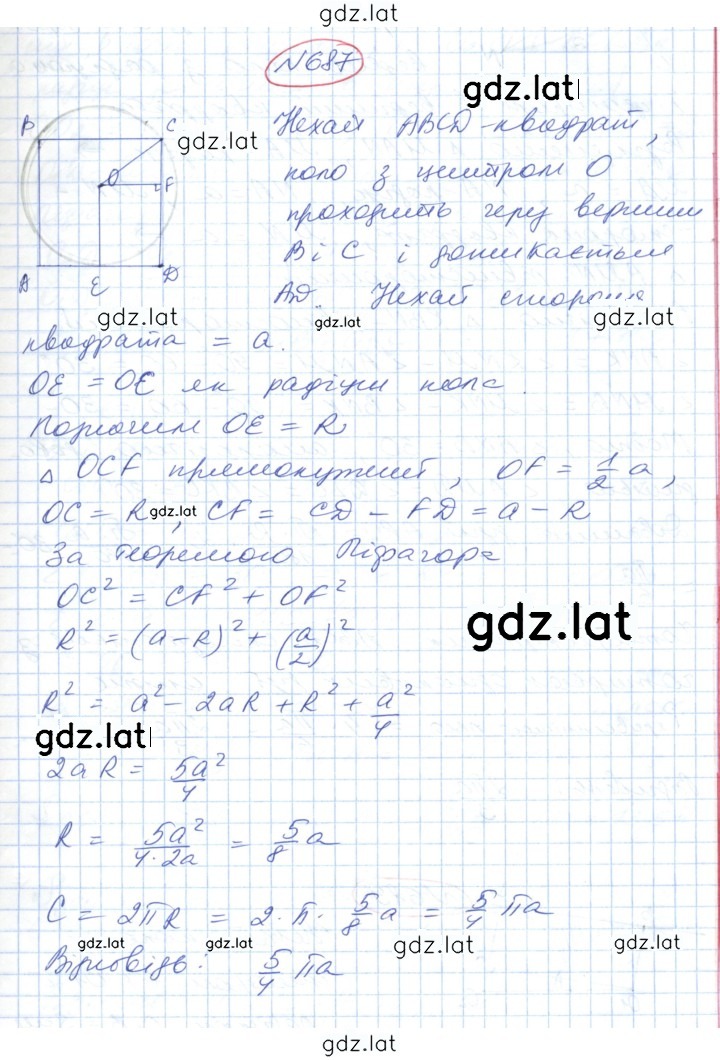 gdz.lat
N687
gdz.lat
B C gdz.lat Нехай ABCD - квадрат,
O F коло з центром O
проходить через вершини
B і C і дотикається
A E D AD. Нехай сторона
gdz.lat gdz.lat gdz.lat
квадрата = a.
OE = OC як радіуси кола.
Позначим OE = R
△ OCF прямокутний, OF = 1/2 a,
OC = R gdz.lat, CF = CD - FD = a - R
За теоремою Піфагора
OC² = CF² + OF²
R² = (a-R)² + (a/2)² gdz.lat
R² = a² - 2aR + R² + a²/4
gdz.lat
2aR = 5a²/4
R = 5a²/4·2a = 5/8 a
C = 2πR = 2·π· 5/8 a = 5/4 πa
gdz.lat gdz.lat gdz.lat gdz.lat
Відповідь: 5/4 πa
gdz.lat